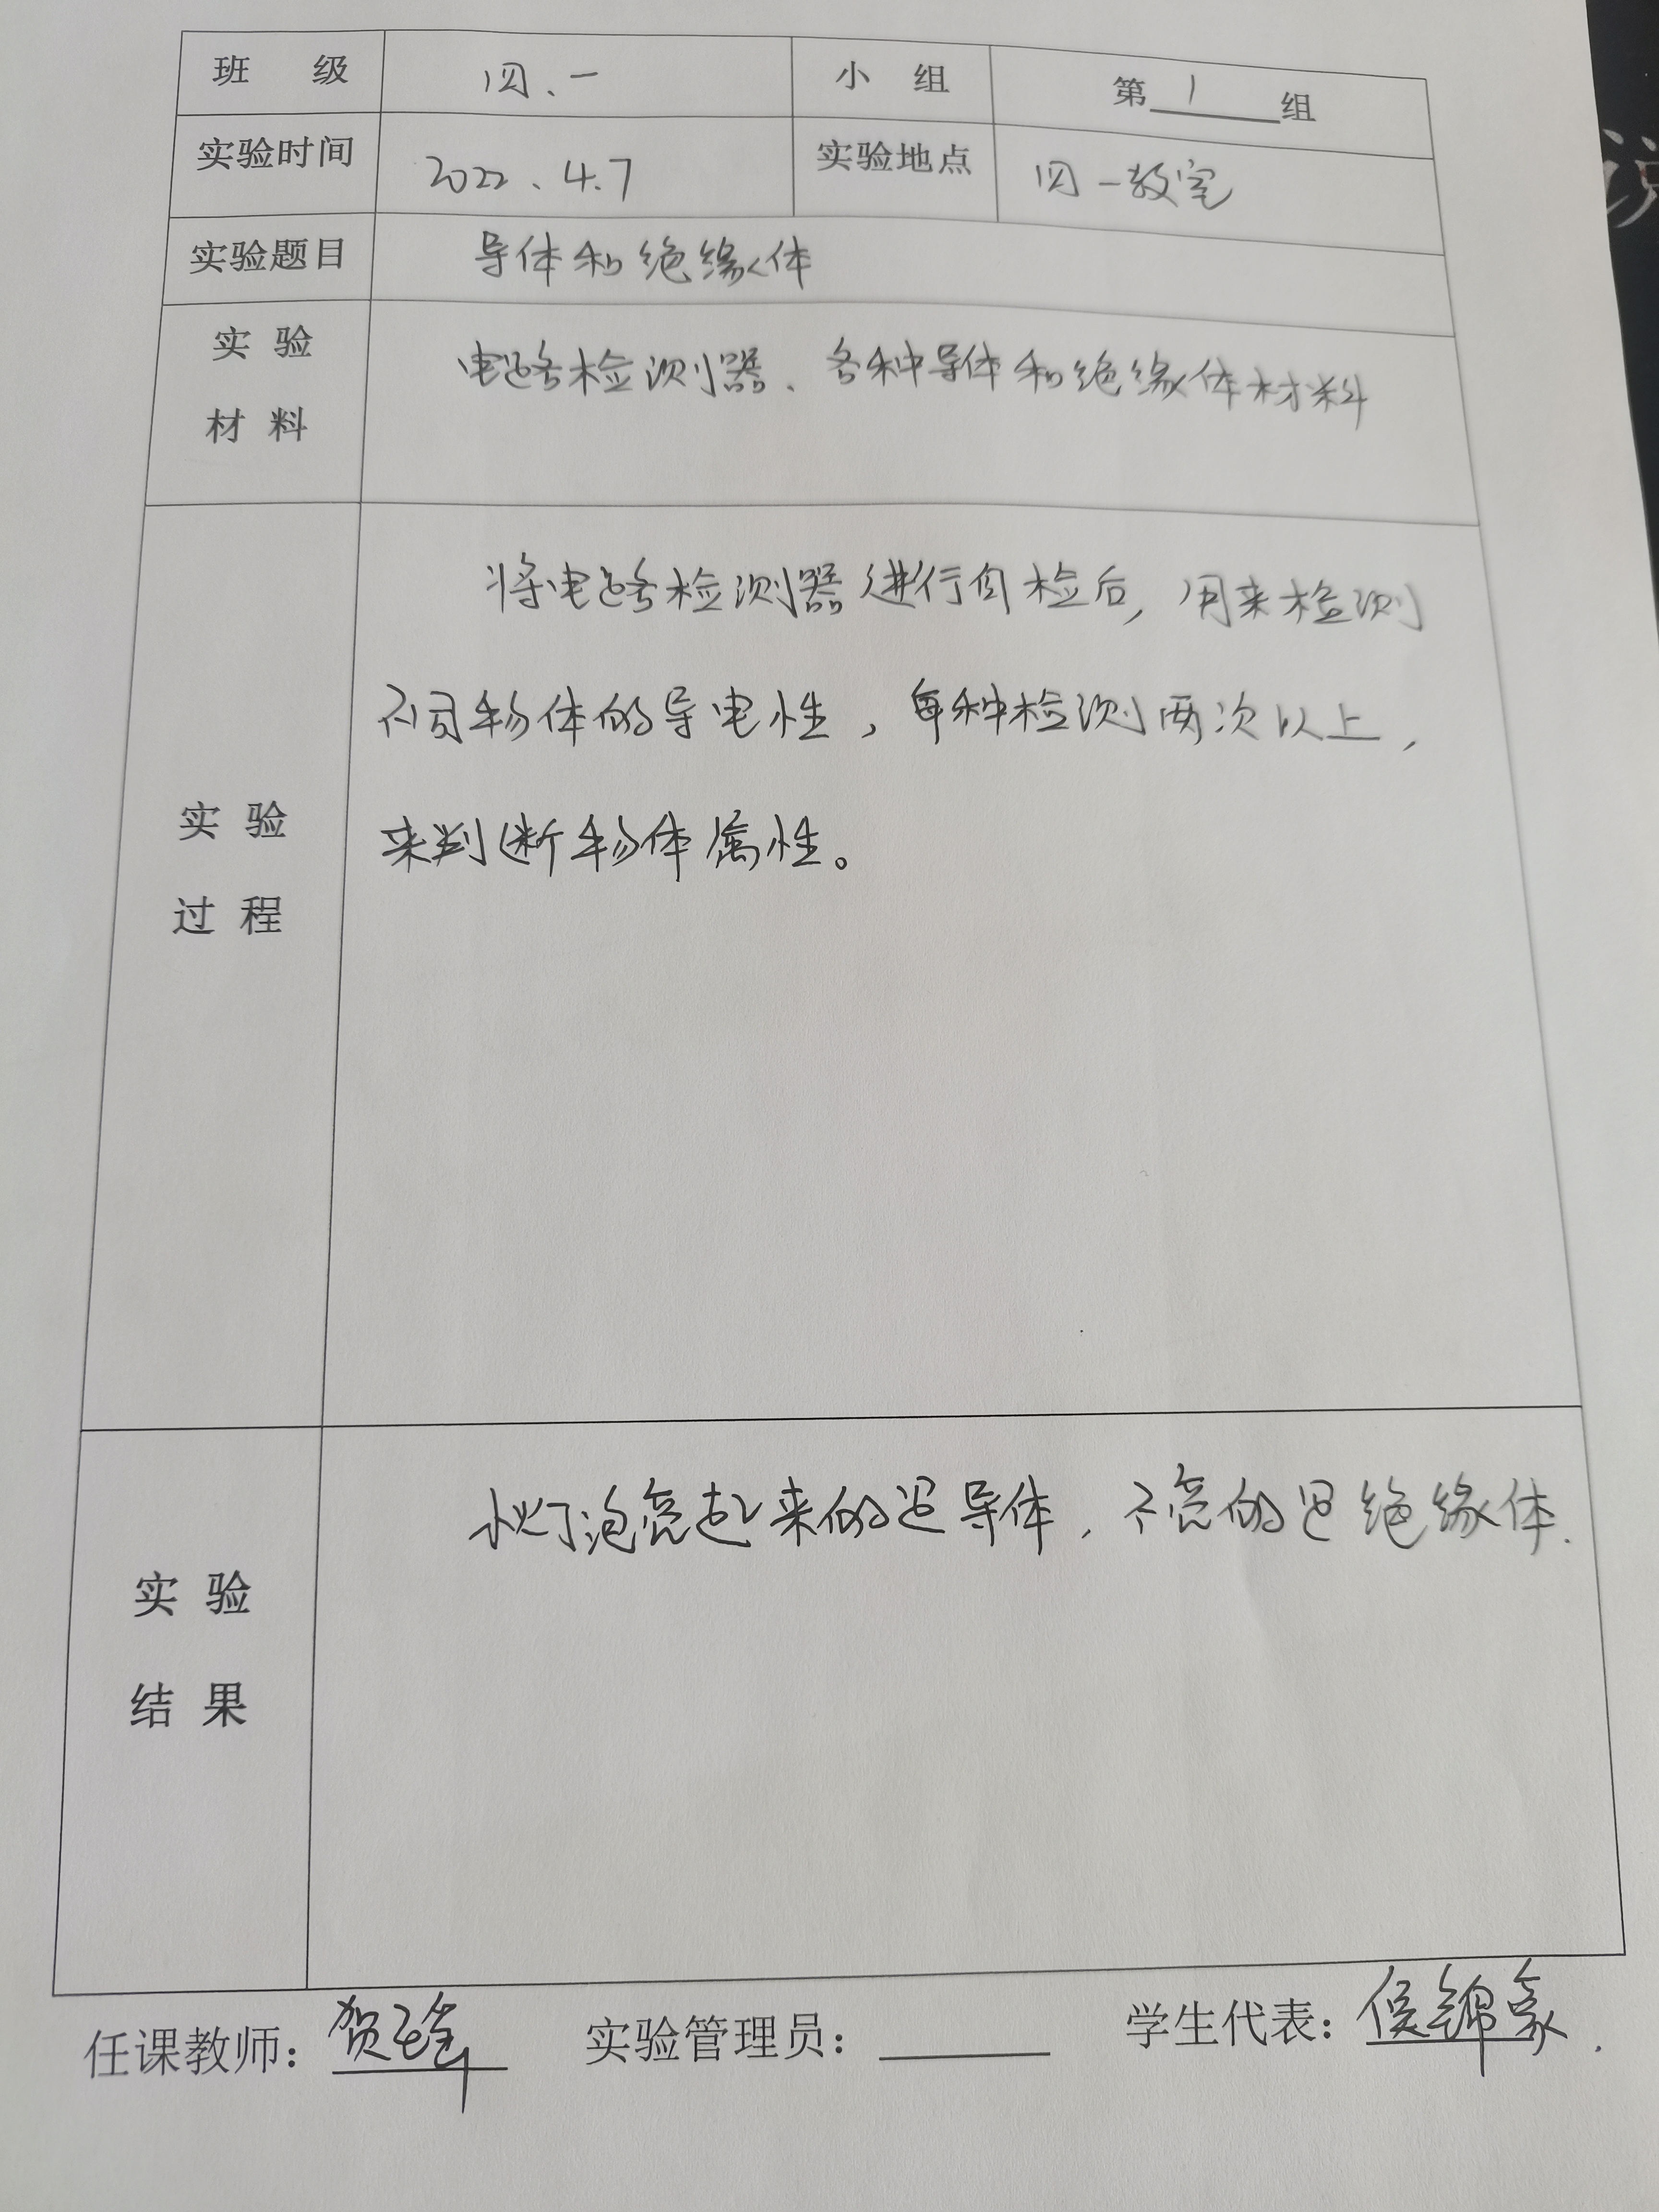 班 级 四.一 小 组 第 1 组
实验时间 2022.4.7 实验地点 四一教室
实验题目 导体和绝缘体
实 验
材 料
电路检测器、各种导体和绝缘体材料
将电路检测器进行自检后,用来检测
不同物体的导电性,每种检测两次以上,
来判断物体属性。
实 验
过 程
小灯泡亮起来的是导体,不亮的是绝缘体.
实 验
结 果
任课教师: 贺 实验管理员: 学生代表: 侯锦豪